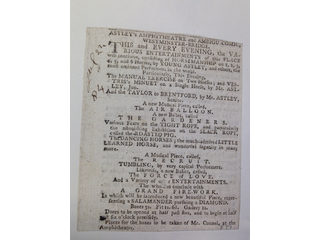 ASTLEY'S AMPHITHEATRE and AMBIGU-COMIC,
WESTMINSTER-BRIDGE.
THIS and EVERY EVENING, the VA-
RIOUS ENTERTAINMENTS of this PLACE
will continue, consisting of HORSEMANSHIP on 1, 2, 3,
4, and 5 Horses, by YOUNG ASTLEY, and others, the
most eminent Performers in the world.
Particularly, This Evening,
The MANUAL EXERCISE on Two Horses; and VES-
TRIS's MINUET on a Single Horse, by Mr. AST-
LEY, Jun.
And the TAYLOR to BRENTFORD, by Mr. ASTLEY,
Senior.
A new Musical Piece, called,
The AIR BALLOON.
A new Ballet, called
THE GARDENERS.
Various Feats on the TIGHT ROPE, and particularly
the astonishing Exhibition on the SLACK ROPE,
called the ROASTED PIG.
The DANCING HORSES; the much-admired LITTLE
LEARNED HORSE, and wonderful sagacity in many
A Musical Piece, called,
The RECRUIT.
TUMBLING, by very capital Performers.
Likewise, a new Ballet, called,
The FORCE of LOVE.
And a Variety of other ENTERTAINMENTS.
The whole to conclude with
A GRAND FIREWORK.
In which will be introduced a new beautiful Piece, repre-
senting a SALAMANDER pursuing a DIAMOND.
Boxes 3s. Pit 2s. 6d. Gallery 1s.
Doors to be opened at half past five, and to begin at half
past six o'clock precisely.
Places for the boxes to be taken of Mr. Connel, at the
Amphitheatre.